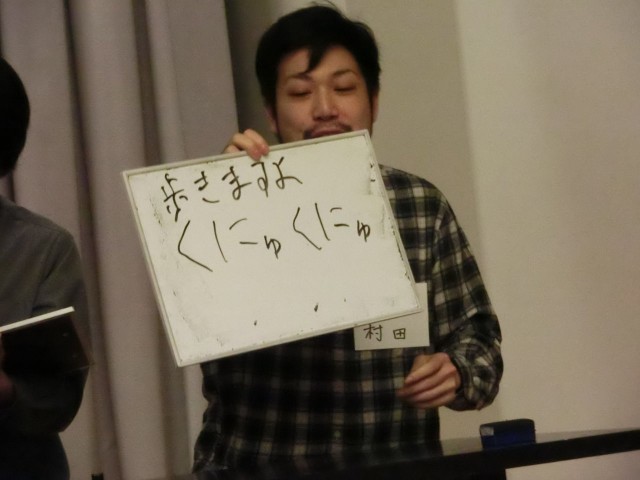 歩きますよ
くにゅくにゅ
村田